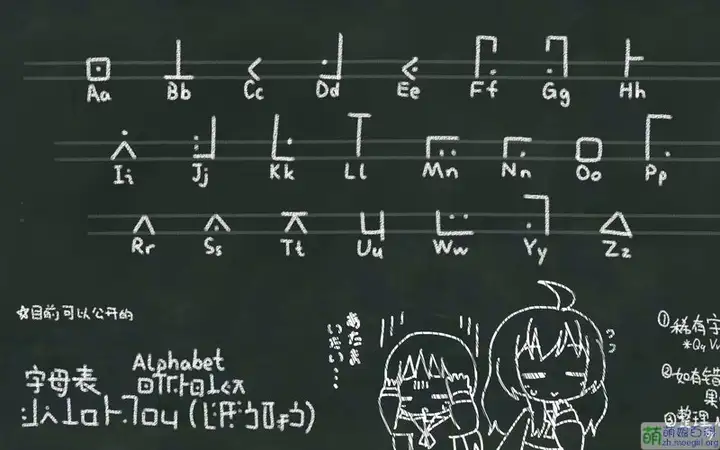 Aa Bb Cc Dd Ee Ff Gg Hh
Ii Jj Kk Ll Mm Nn Oo Pp
Rr Ss Tt Uu Ww Yy Zz
☆目前可以公开的
字母表 Alphabet
あたま
いたい…
① 稀有字
*Qq Vv
② 如有错
果
③ 整理人
萌娘百科
zh.moegirl.org